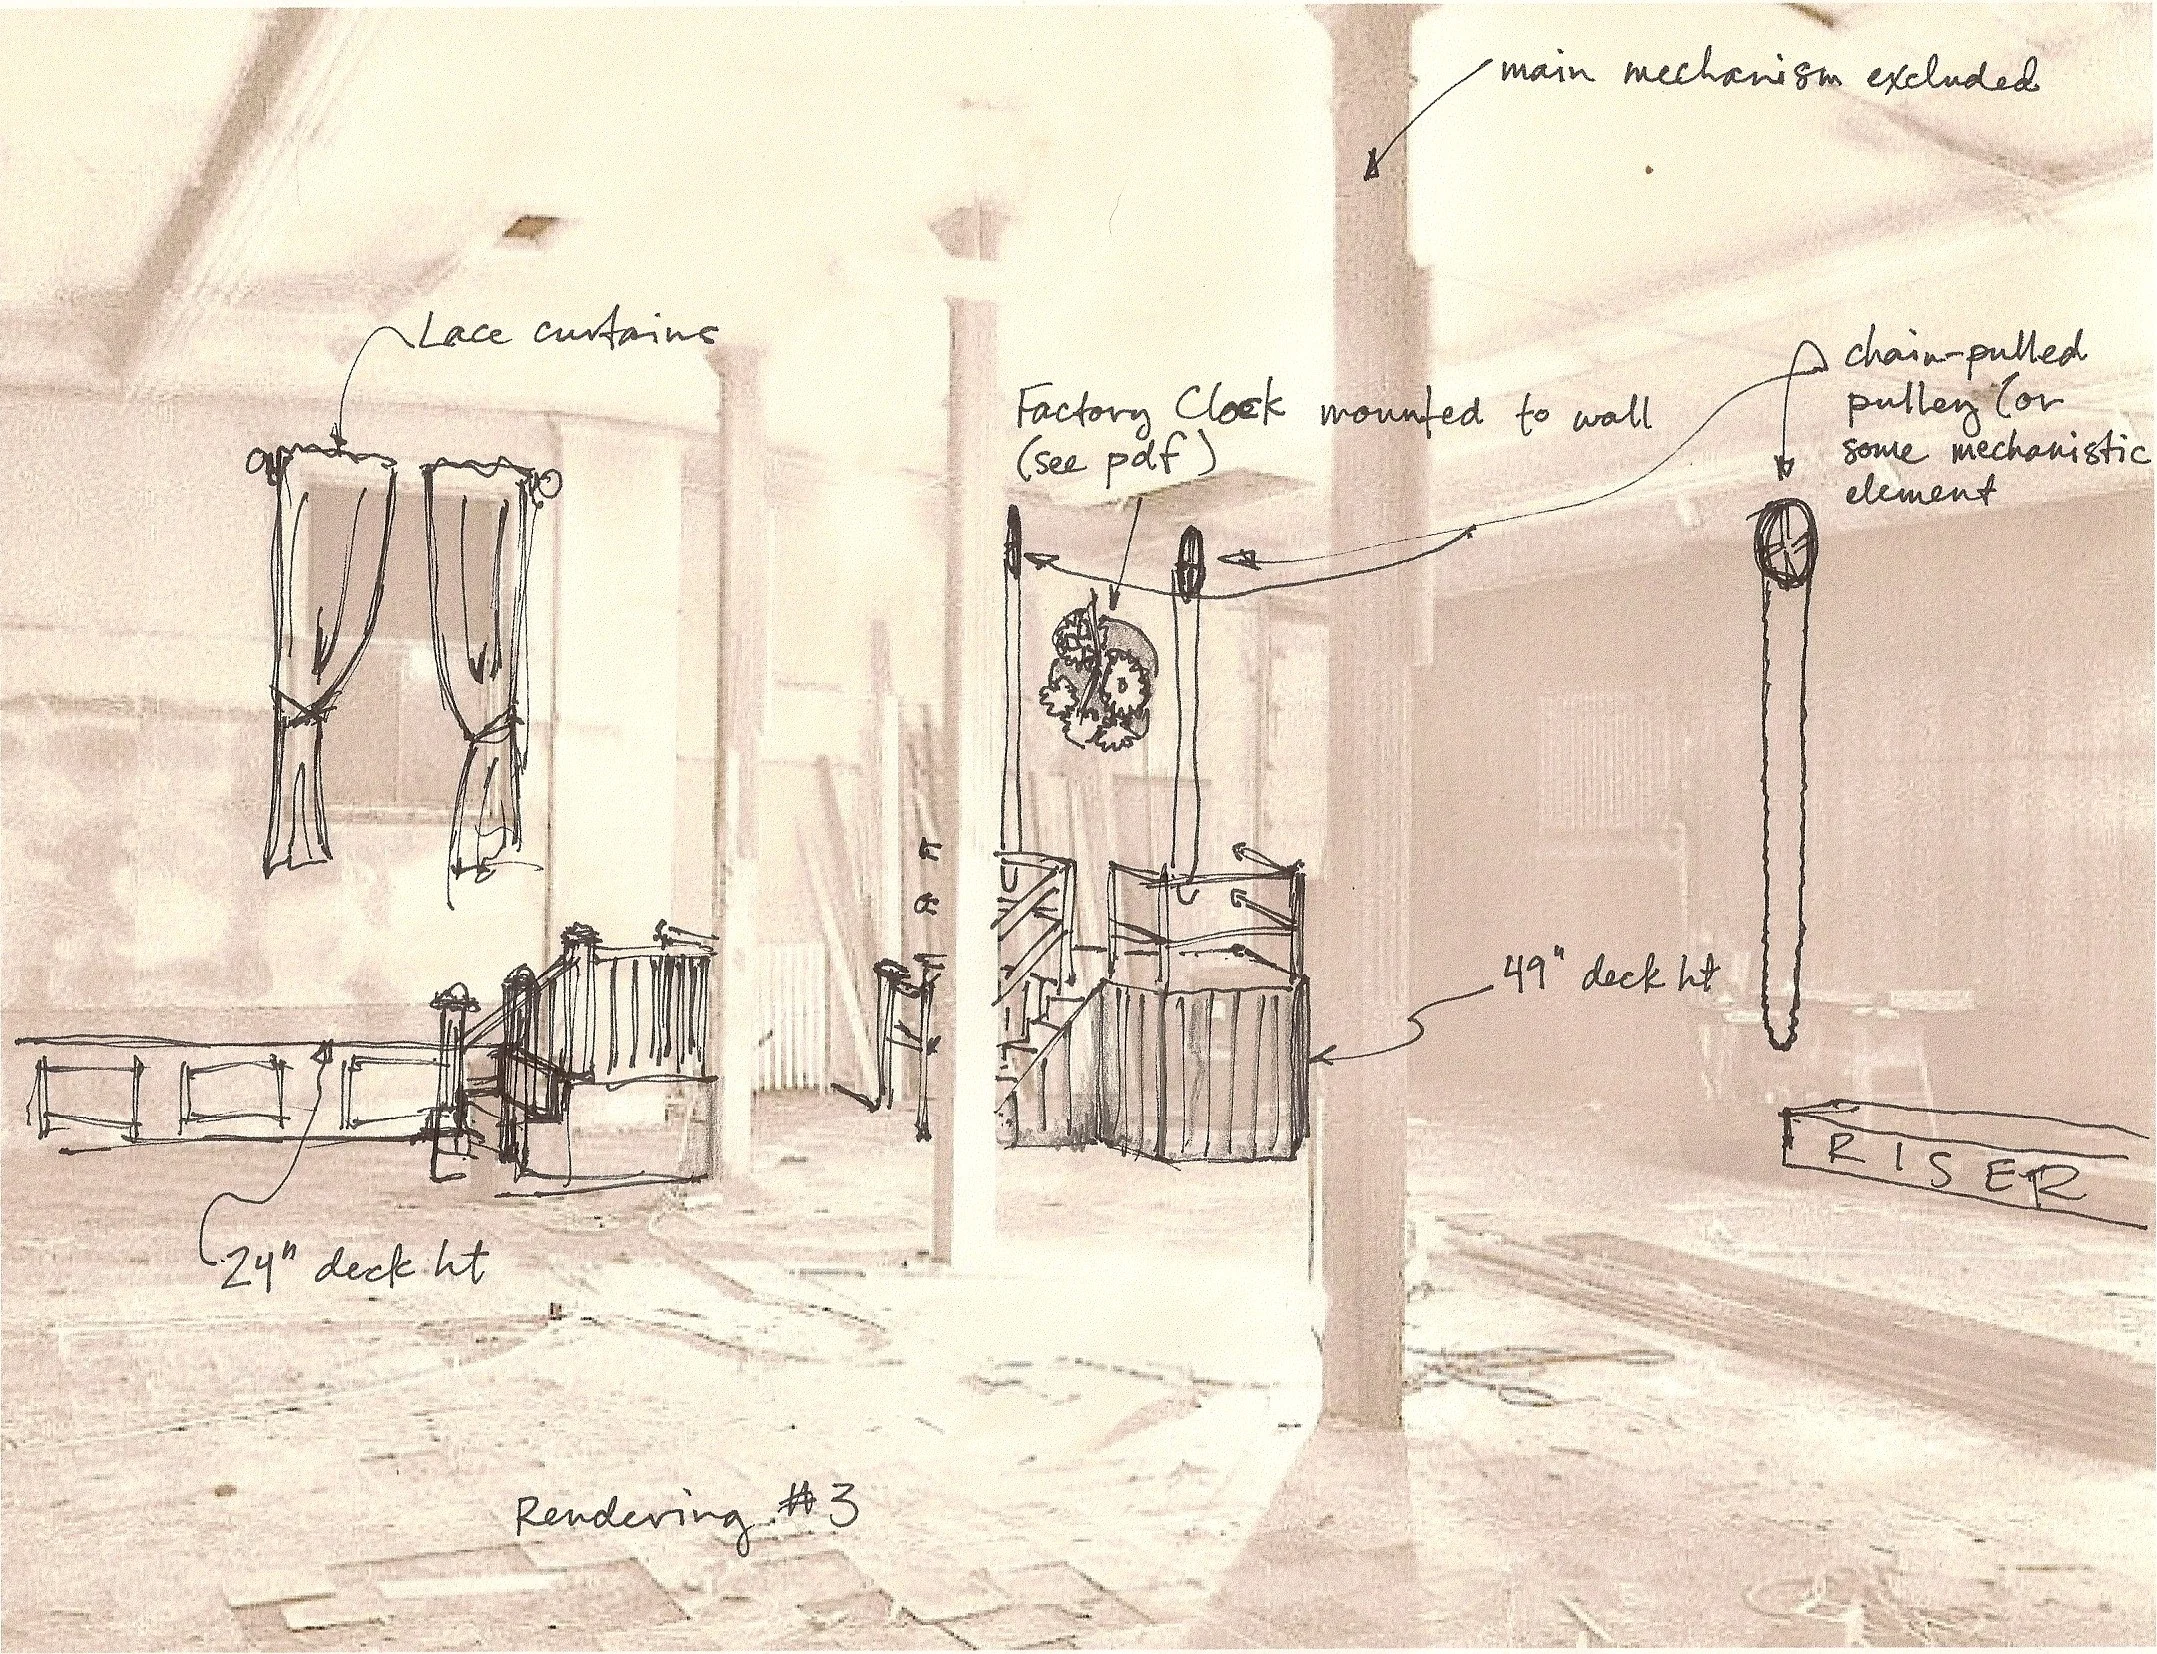 main mechanism excluded
Lace curtains
chain-pulled
pulley (or
some mechanistic
element
Factory Clock mounted to wall
(see pdf)
49" deck ht
RISER
24" deck ht
Rendering #3